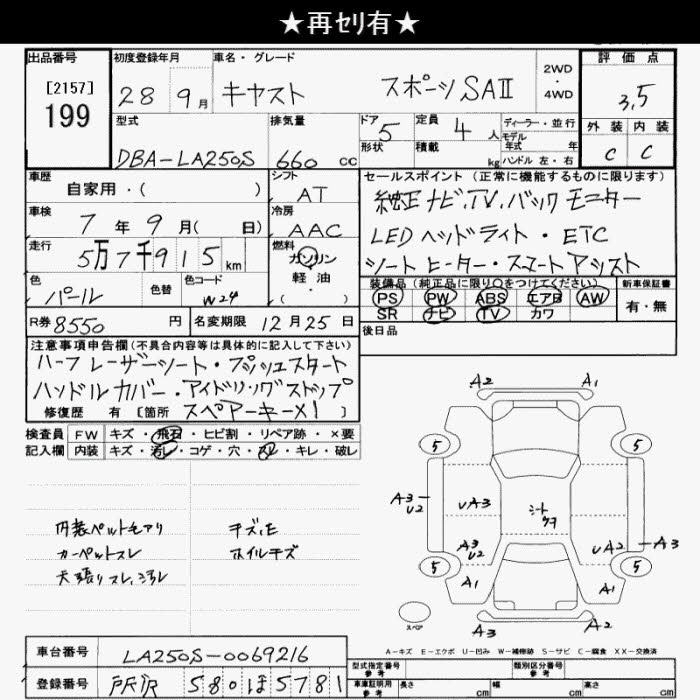 ★再セリ有★
出品番号 初度登録年月 車名・グレード 2WD・4WD 評価点
[2157]
199
28 9月 キャスト スポーツ SAⅡ 3.5
型式 排気量 ドア 5 定員 4人 ディーラー・並行 外装 内装
DBA-LA250S 660 cc 形状 積載 kg モデル年式 年 ハンドル 左・右 C C
車歴 シフト セールスポイント(正常に機能するものに限ります)
自家用・( ) AT 純正ナビ、TV、バックモニター
車検 冷房
7年9月( 日) AAC LEDヘッドライト・ETC
走行 燃料
5万7千915km ガソリン シートヒーター・スマートアシスト
色 色替 色コード 軽油 装備品(純正品に限り○をつけてください) 新車保証書
パール W24 ・( ) PS PW ABS エアB AW 有・無
SR ナビ TV カワ
R券 8550円 名変期限 12月25日 後日品
注意事項申告欄(不具合内容等は具体的に記入して下さい)
ハーフレーザーシート・プッシュスタート
ハンドルカバー・アイドリングストップ
修復歴 有 [箇所 スペアーキー×1
検査員 FW キズ・飛石・ヒビ割・リペア跡・×要
記入欄 内装 キズ・汚レ・コゲ・穴・スレ・キレ・破レ
A2 A1
5 5
A3 U2 UA3 シート
A3 U2 UA2 A3
5 5
A1 A1
スペア A3 A2
内装ペットモアリ キズ、E
カーペットスレ ホイルキズ
天張りスレ、汚レ
A-キズ E-エクボ U-凹み W-補修跡 S-サビ C-腐食 XX-交換済
車台番号 LA250S-0069216
型式指定番号 参考 類別区分番号 参考
登録番号 所沢 580 ほ 5781
車庫証明用 参考 長さ cm 幅 cm 高さ cm